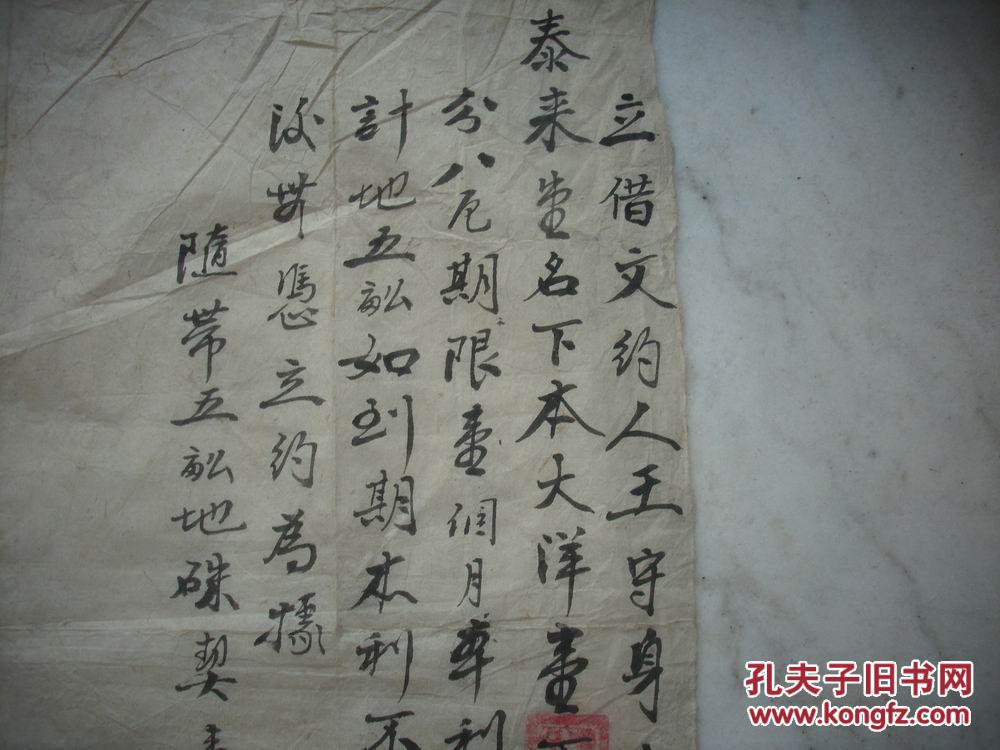 立借文约人王守身
泰来堂名下本大洋壹
分八厘期限壹個月本利
計地五畝如到期本利不
恐後無憑立约為據
隨帶五畝地硃契
孔夫子旧书网
www.kongfz.com